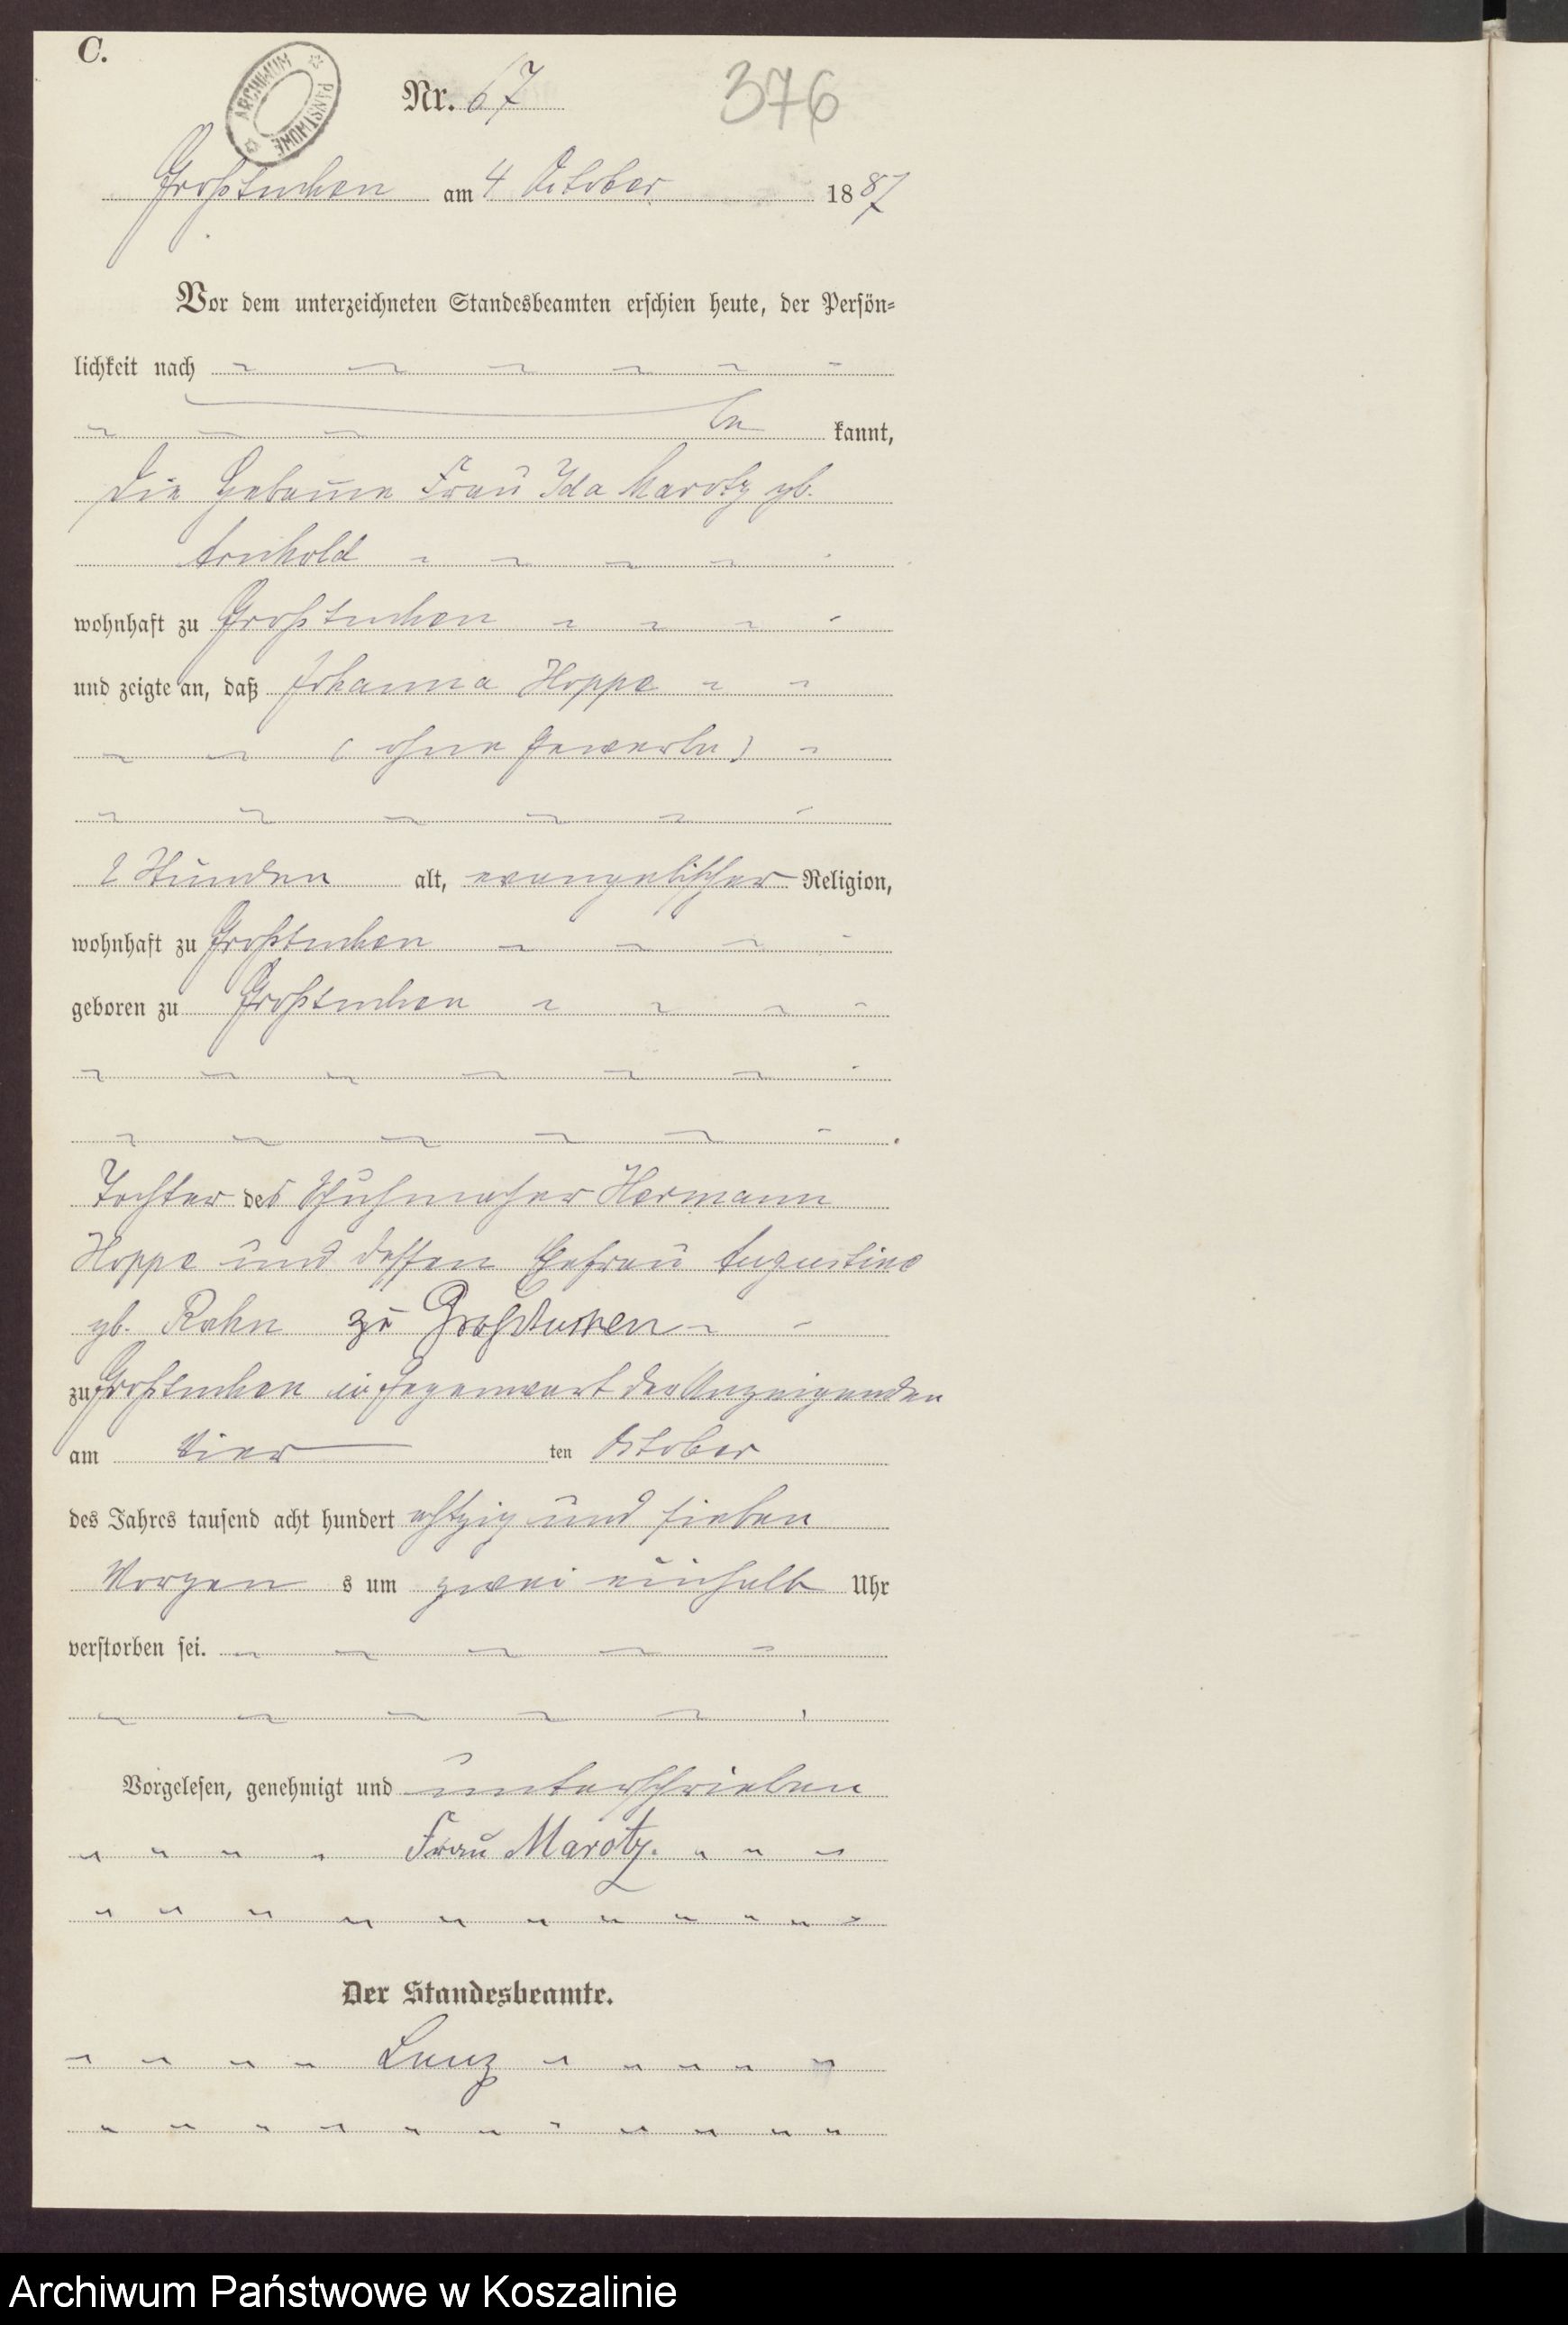 C.
ARCHIWUM PAŃSTWOWE
Nr. 67
376
Großtuchen am 4 October 1887
Vor dem unterzeichneten Standesbeamten erschien heute, der Persön=
lichkeit nach
be kannt,
die Hebamme Frau Ida Marotz gb.
Arnhold
wohnhaft zu Großtuchen
und zeigte an, daß Johanna Hoppe
(ohne Gewerbe)
2 Stunden alt, evangelischer Religion,
wohnhaft zu Großtuchen
geboren zu Großtuchen
Tochter des Schuhmacher Hermann
Hoppe und dessen Ehefrau Augustine
gb. Rahn zu Großtuchen
zu Großtuchen in Gegenwart der Anzeigenden
am vier ten October
des Jahres tausend acht hundert achtzig und sieben
Morgen s um zwei einhalb Uhr
verstorben sei.
Vorgelesen, genehmigt und unterschrieben
Frau Marotz.
Der Standesbeamte.
Archiwum Państwowe w Koszalinie